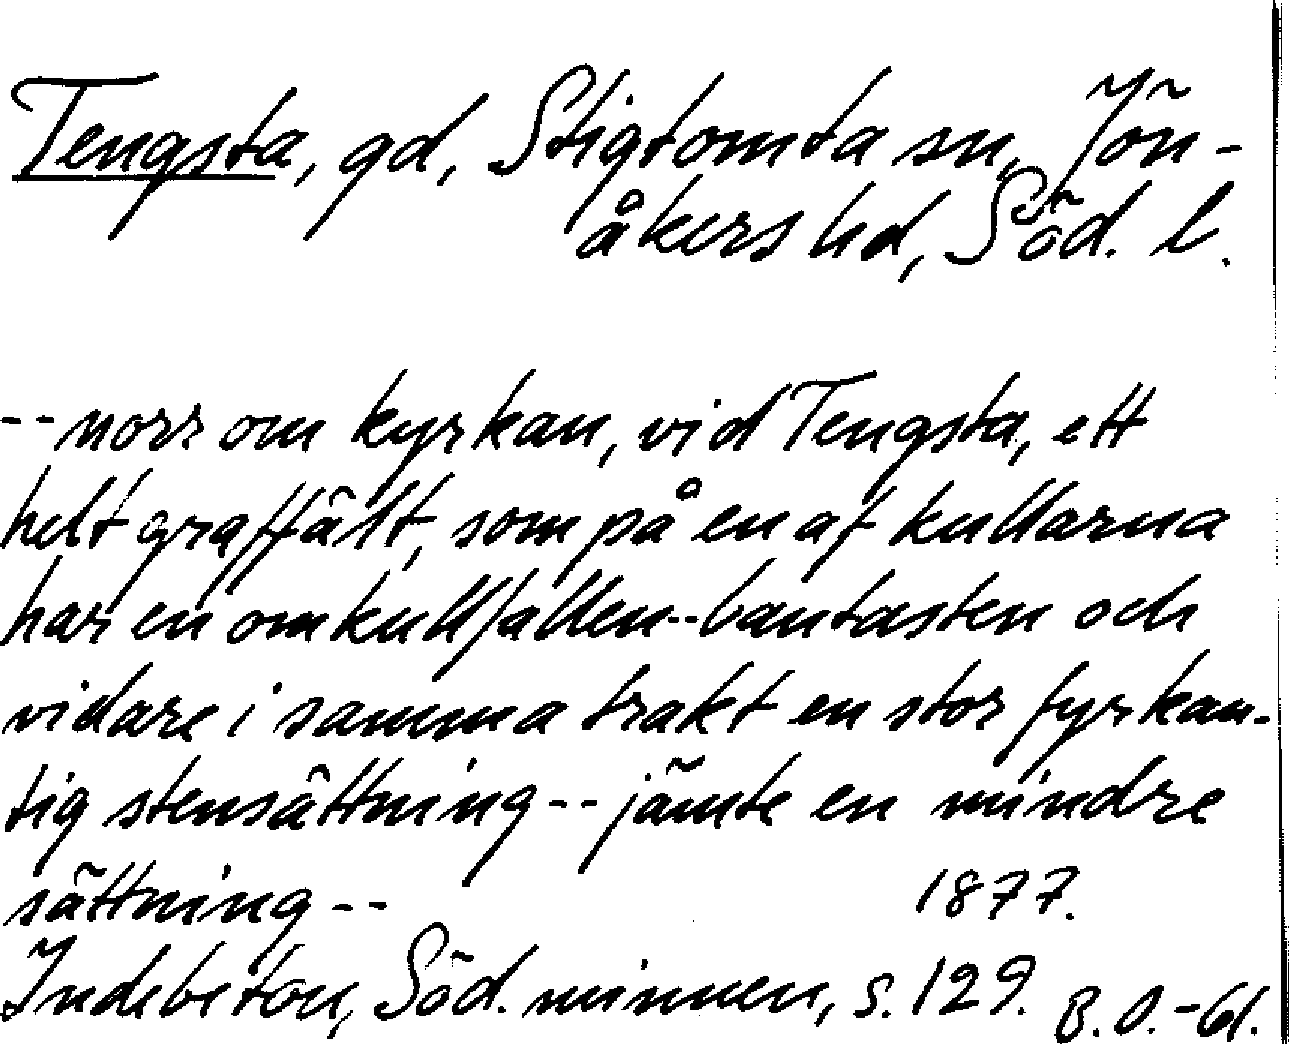 Tengsta, gd, Stigtomta sn, Jön-
åkers hd, Söd. l.
-- norr om kyrkan, vid Tengsta, ett
helt graffält, som på en af kullarna
har en omkullfallen -- bautasten och
vidare i samma trakt en stor fyrkan-
tig stensättning -- jämte en mindre
sättning -- 1877.
Indebetou, Söd. minnen, s. 129. B.O. -61.